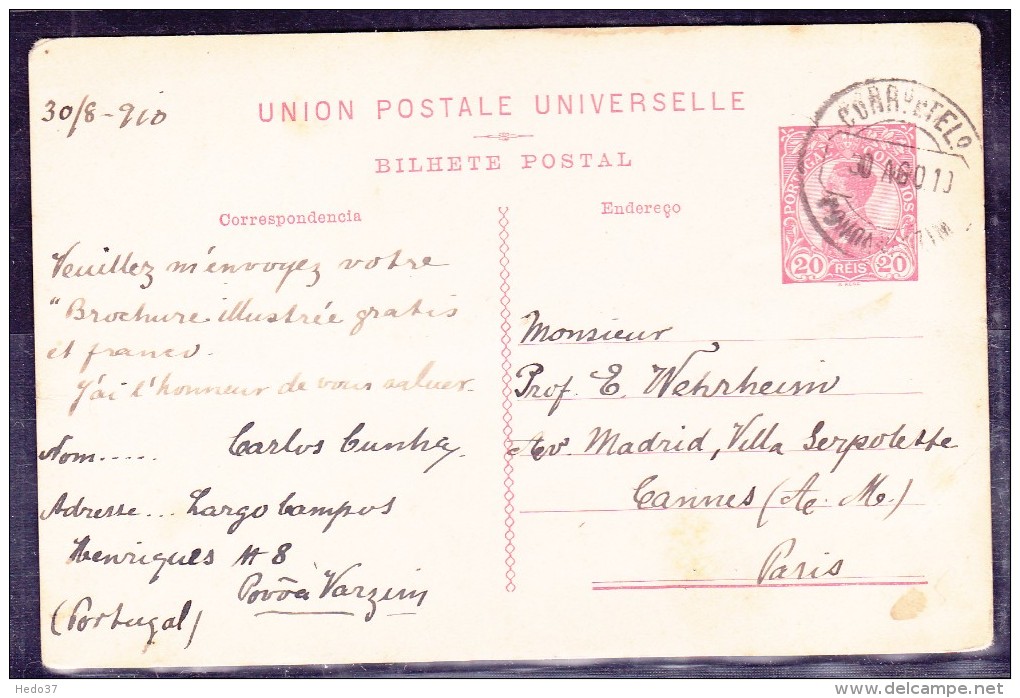 30/8-910
UNION POSTALE UNIVERSELLE
BILHETE POSTAL
Correspondencia
Endereço
CORR.os E TEL.os
30 AGO 10
VARZIM
PORTUGAL CORREIOS
20 REIS 20
Veuillez m'envoyez votre
"Brochure illustrée gratis
et franco.
J'ai l'honneur de vous saluer.
Nom..... Carlos Cunha.
Adresse... Largo Campos
Henriques # 8
Povôa Varzim
(Portugal)
Monsieur
Prof. E. Wehrheim
Av. Madrid, Villa Serpolette
Cannes (A. M.)
Paris
Hedo37
http://www.delcampe.net